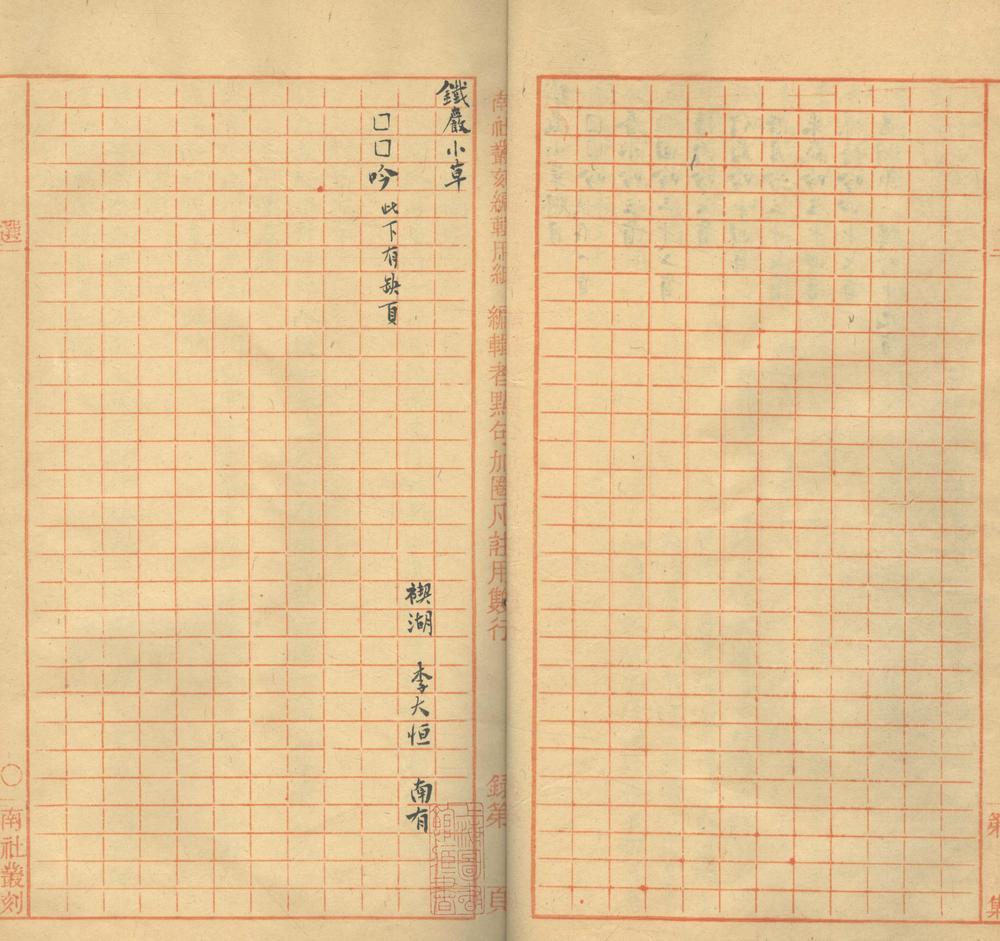 南社叢刻編輯用紙 編輯者點句加圈凡註用雙行 錄第 頁
鐵嚴小草
禊湖 李大恒 南有
□□吟此下有缺頁
選
〇
南社叢刻
第
集